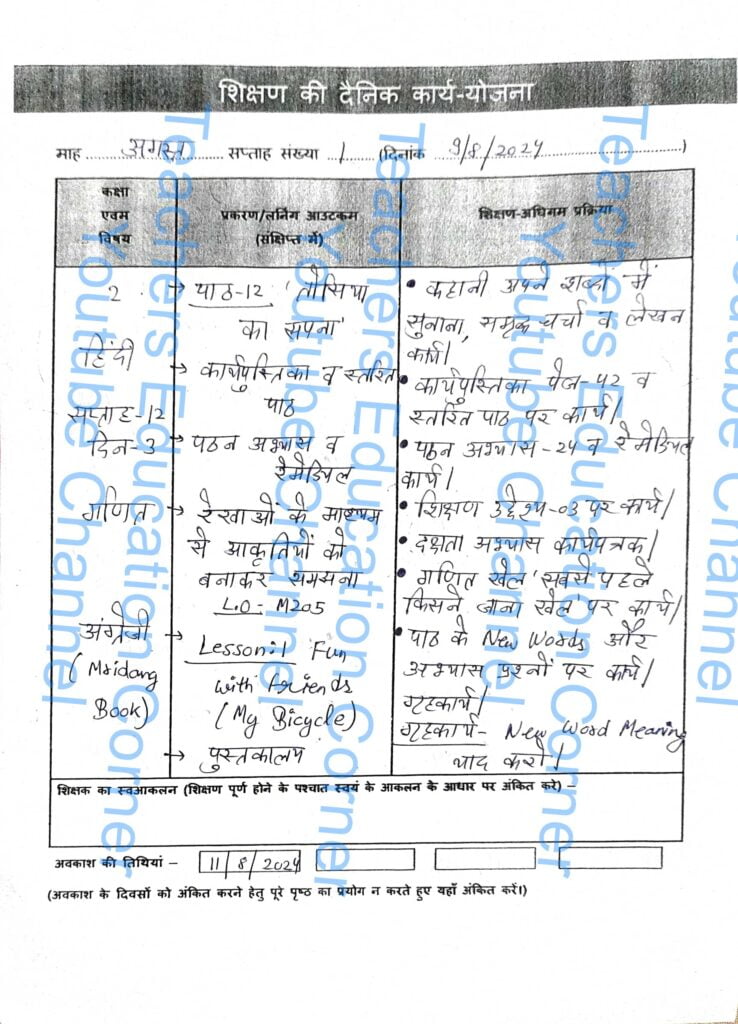 शिक्षण की दैनिक कार्य-योजना
माह ...अगस्त... सप्ताह संख्या ..1.. (दिनांक 9/8/2024)
कक्षा
एवम
विषय
प्रकरण/लर्निंग आउटकम
(संक्षिप्त में)
शिक्षण-अधिगम प्रक्रिया
2
हिंदी
सप्ताह-12
दिन-3
गणित
अंग्रेजी
(Mridang
Book)
→ पाठ-12 'तोसिया
का सपना'
→ कार्यपुस्तिका व स्तरित
पाठ
→ पठन अभ्यास व
रेमेडियल
→ रेखाओं के माध्यम
से आकृतियों को
बनाकर समझना
L.O- M205
→ Lesson:1 Fun
with friends
(My Bicycle)
→ पुस्तकालय
• कहानी अपने शब्दों में
सुनाना, समूह चर्चा व लेखन
कार्य।
• कार्यपुस्तिका पेज-42 व
स्तरित पाठ पर कार्य।
• पठन अभ्यास-24 व रेमेडियल
कार्य।
• शिक्षण उद्देश्य-03 पर कार्य।
• दक्षता अभ्यास कार्यपत्रक।
• गणित खेल 'सबसे पहले
किसने जाना खेल' पर कार्य।
• पाठ के New Words और
अभ्यास प्रश्नों पर कार्य।
गृहकार्य।
गृहकार्य- New Word Meaning
याद करो।
शिक्षक का स्वआकलन (शिक्षण पूर्ण होने के पश्चात स्वयं के आकलन के आधार पर अंकित करे) –
अवकाश की तिथियां – 11/8/2024
(अवकाश के दिवसों को अंकित करने हेतु पूरे पृष्ठ का प्रयोग न करते हुए यहाँ अंकित करें।)
Teachers Education Corner
Youtube Channel
Teachers Education Corner
Youtube Channel
Teachers Education Corner
Youtube Channel
Youtube Channel